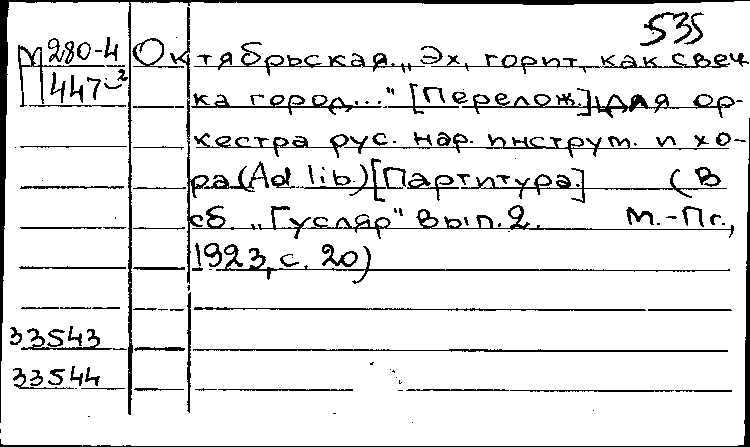 535
М280-4 Октябрьская. „Эх, горит, как свеч
447-2 ка город..." [Перелож.] для ор-
кестра рус. нар. инструм. и хо-
ра (Ad lib) [Партитура.] (В
сб. „Гусляр" вып. 2. М.-Пг.,
1923, с. 20)
33543
33544